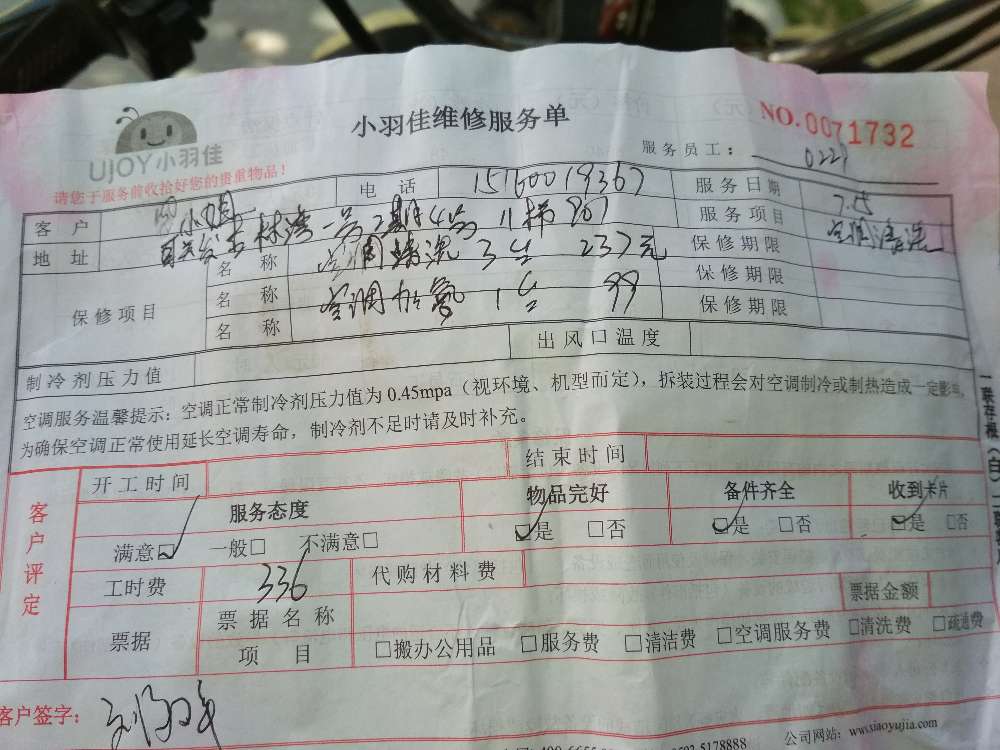 小羽佳维修服务单
NO.0071732
UJOY小羽佳
服务员工：
请您于服务前收拾好您的贵重物品！
客户 小姐 电话 15160019367 服务日期 7.15
地址 林湾一号2期4号11梯 服务项目 空调清洗
保修项目
名称 空调清洗 3台 237元 保修期限
名称 空调加氟 1台 99 保修期限
名称 保修期限
制冷剂压力值 出风口温度
空调服务温馨提示：空调正常制冷剂压力值为 0.45mpa（视环境、机型而定），拆装过程会对空调制冷或制热造成一定影响，
为确保空调正常使用延长空调寿命，制冷剂不足时请及时补充。
客户评定
开工时间 结束时间
服务态度 物品完好 备件齐全 收到卡片
满意☑ 一般□ 不满意□ ☑是 □否 ☑是 □否 ☑是 □否
工时费 336 代购材料费
票据 票据名称 票据金额
项目 □搬办公用品 □服务费 □清洁费 □空调服务费 □清洗费 □疏通费
客户签字：
公司网站：www.xiaoyujia.com